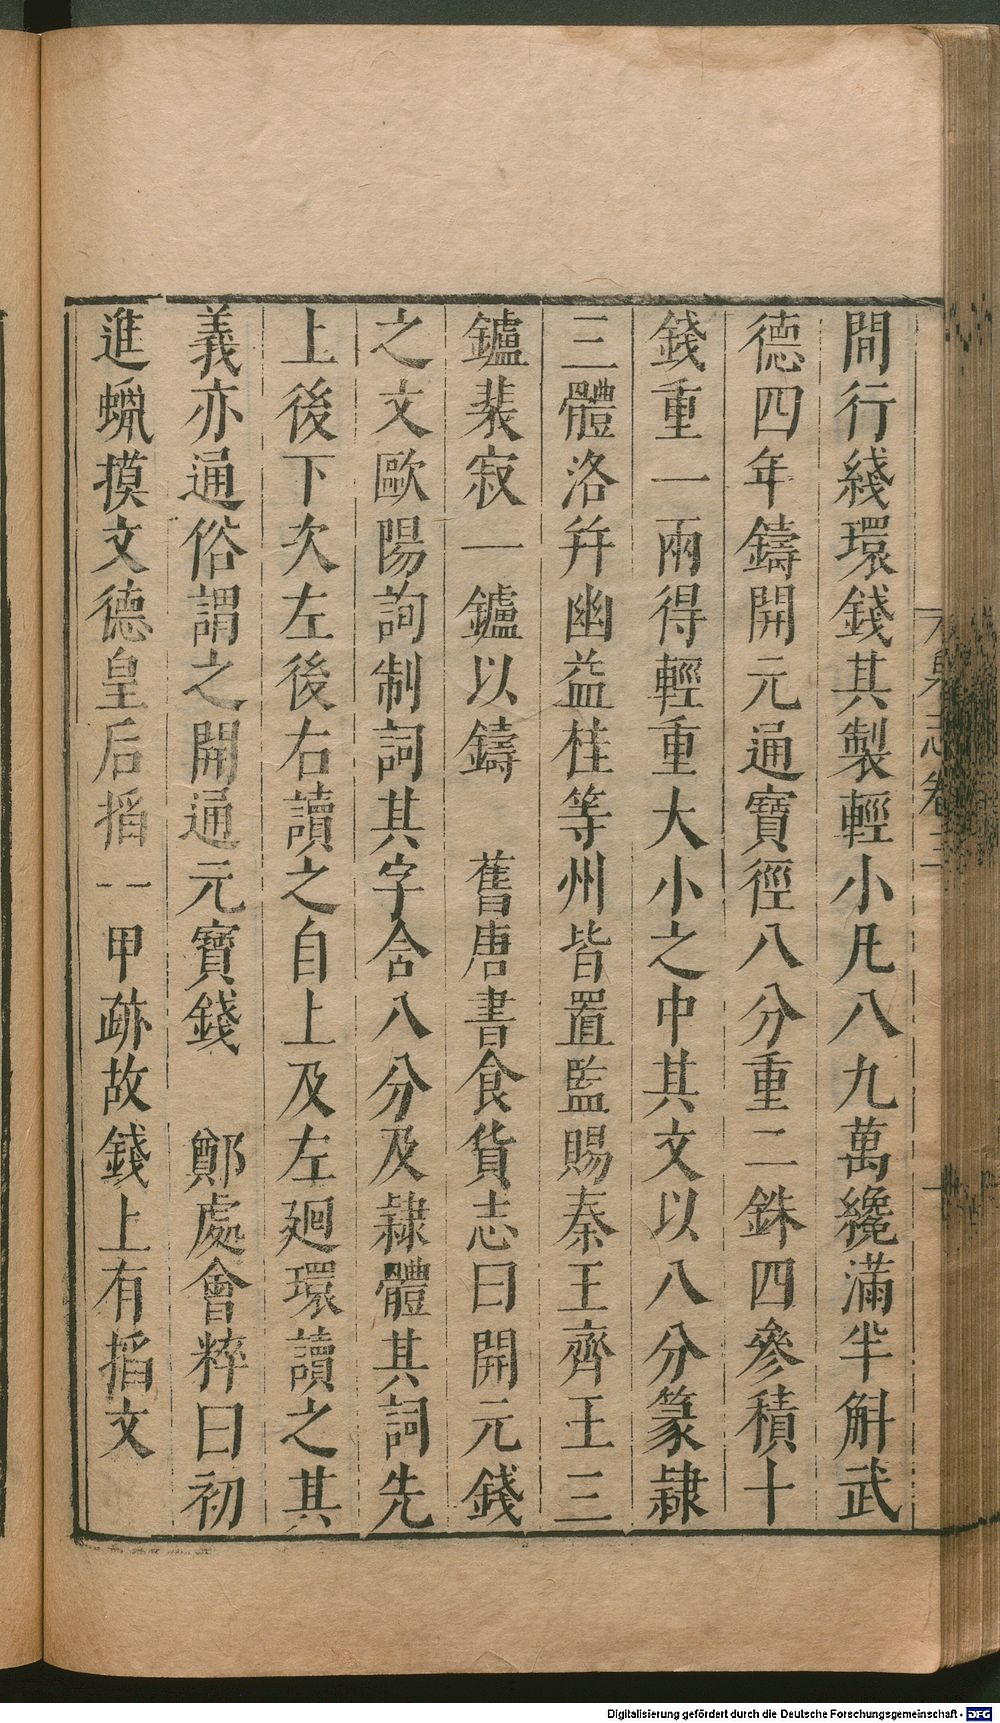 間行綫環錢其製輕小凡八九萬纔滿半斛武
德四年鑄開元通寶徑八分重二銖四參積十
錢重一兩得輕重大小之中其文以八分篆隸
三體洛幷幽益桂等州皆置監賜秦王齊王三
鑪裴寂一鑪以鑄　舊唐書食貨志曰開元錢
之文歐陽詢制詞其字含八分及隸體其詞先
上後下次左後右讀之自上及左廻環讀之其
義亦通俗謂之開通元寶錢　鄭處會粹曰初
進蠟摸文德皇后搯一甲跡故錢上有搯文
志卷
Digitalisierung gefördert durch die Deutsche Forschungsgemeinschaft - DFG